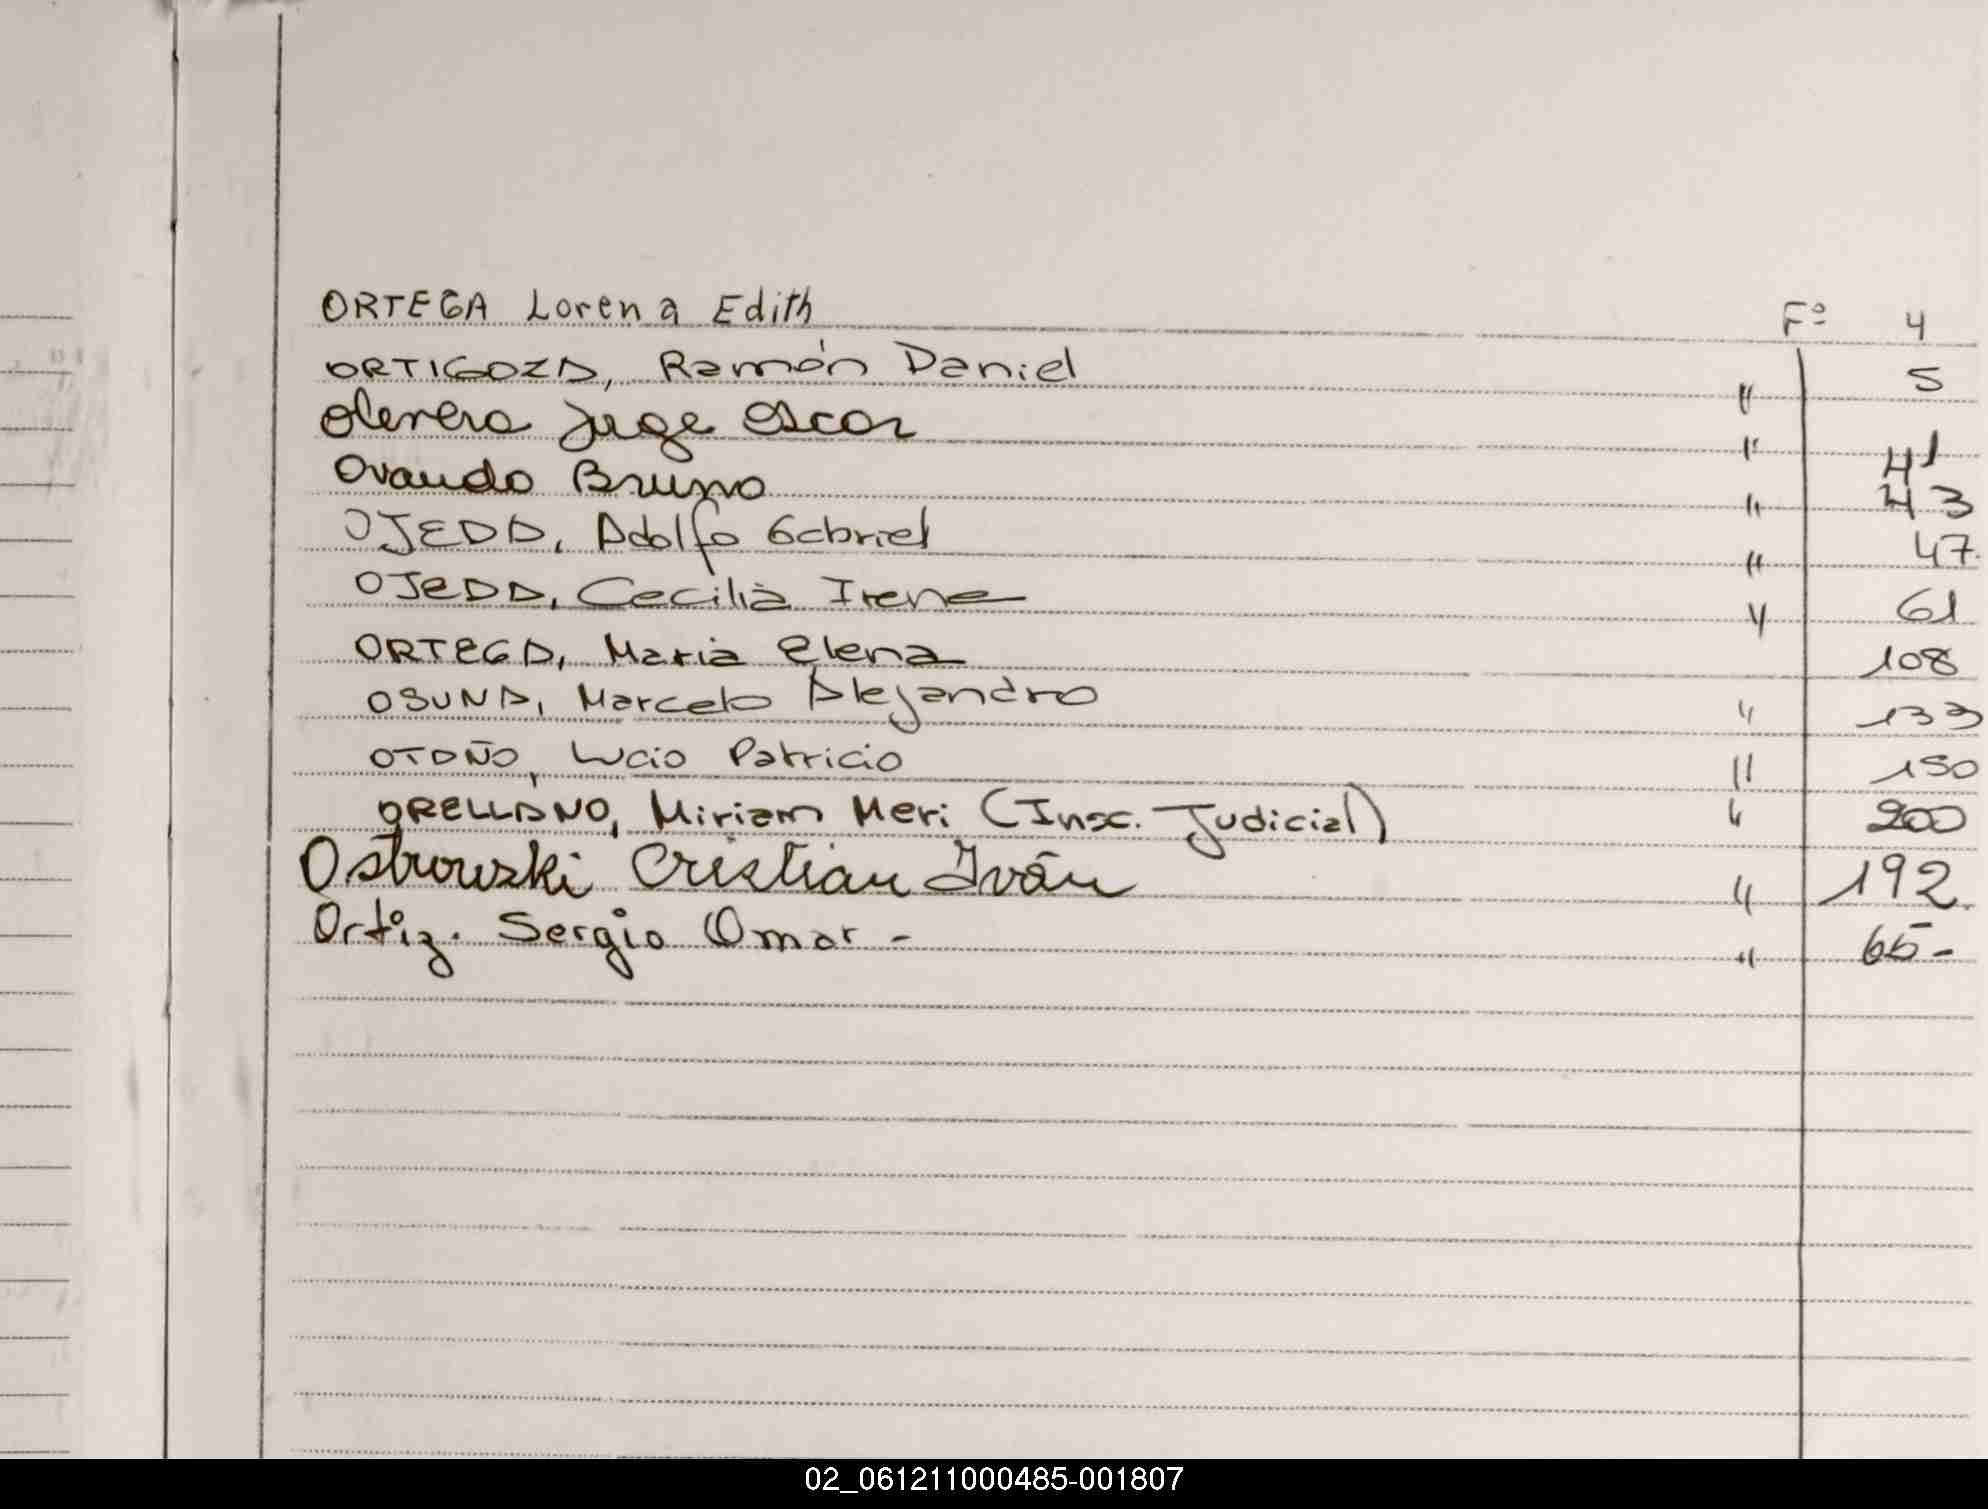 ORTEGA Lorena Edith Fº 4
ORTIGOZA, Ramón Daniel " 5
Olevera Juge Oscar " 41
Ovando Bruno " 43
OJEDA, Adolfo Gabriel " 47
OJEDA, Cecilia Irene " 61
ORTEGA, Maria Elena 108
OSUNA, Marcelo Alejandro " 133
OTOÑO, Lucio Patricio " 150
ORELLANO, Miriam Meri (Insc. Judicial) " 200
Ostrowski Cristian Iván " 192
Ortiz. Sergio Omar - " 65-
02_061211000485-001807